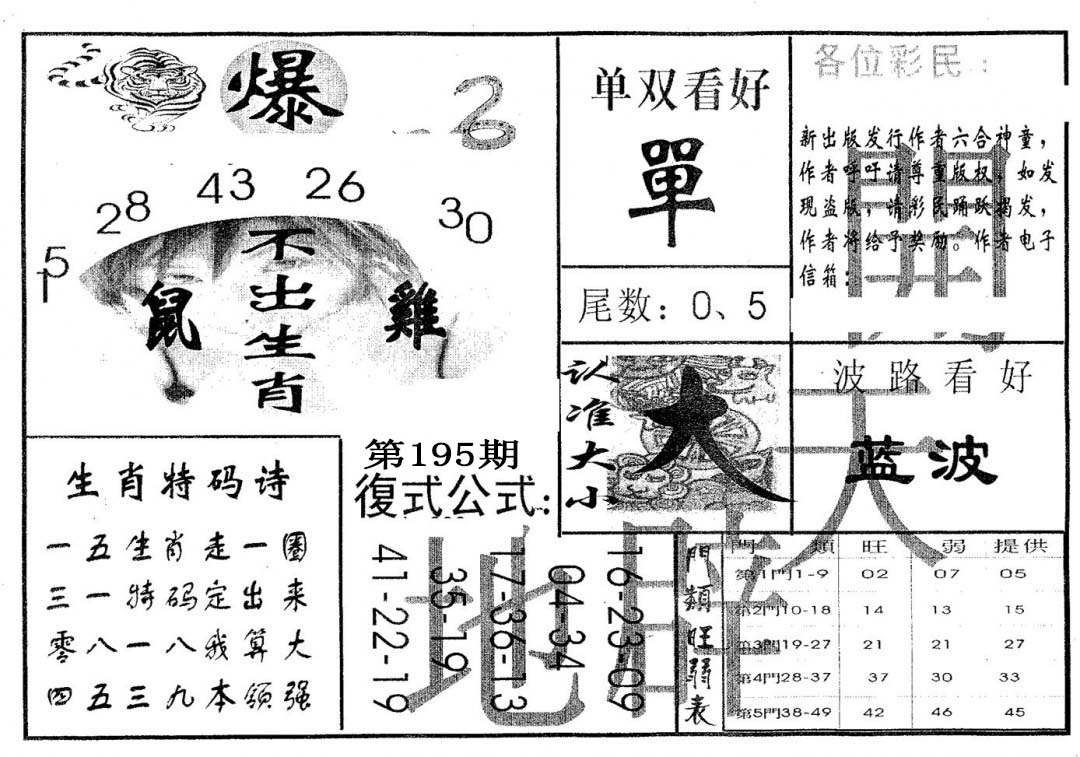 爆
2
5 28 43 26 30
鼠
不出生肖
雞
单双看好
單
尾数：0、5
各位彩民：
新出版发行作者六合神童，
作者呼吁请尊重版权，如发
现盗版，请彩民踊跃揭发，
作者将给予奖励。作者电子
信箱：
认准大小
大
波路看好
蓝波
生肖特码诗
一五生肖走一圈
三一特码定出来
零八一八我算大
四五三九本领强
第195期
復式公式：
16-23-09
04-34
17-36-13
35-19
41-22-19
門類旺弱表
門類 旺 弱 提供
第1門1-9 02 07 05
第2門10-18 14 13 15
第3門19-27 21 21 27
第4門28-37 37 30 33
第5門38-49 42 46 45
天
地